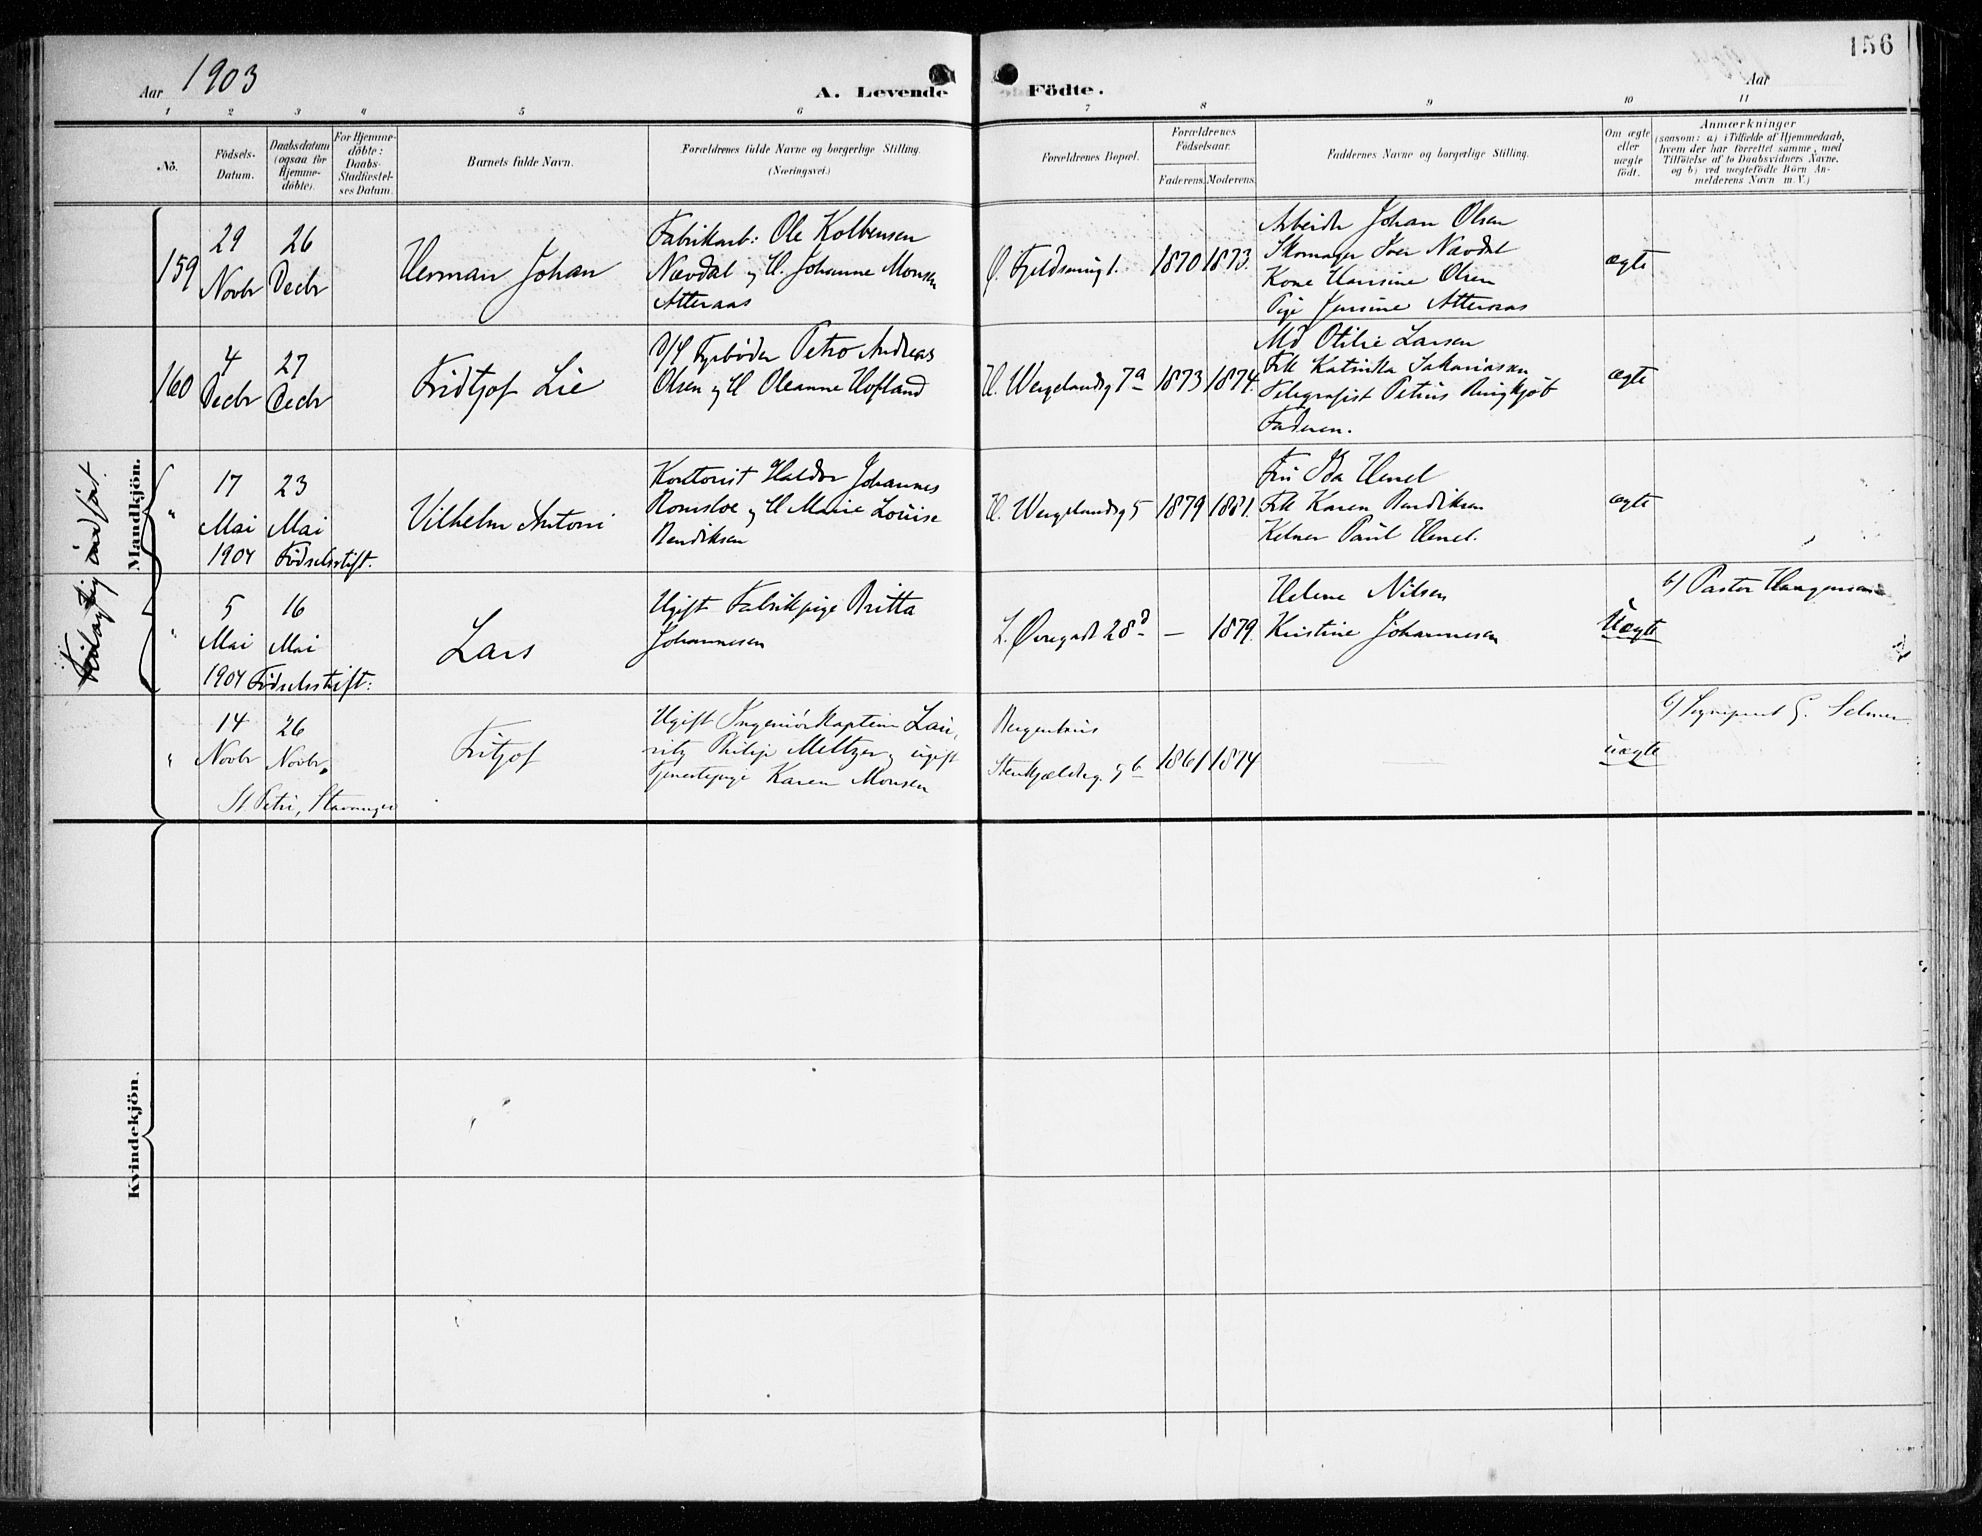 156
Aar 1903
A. Levende Födte.
Aar
1 2 3 4 5 6 7 8 9 10 11
No.
Födsels-
Datum.
Daabsdatum
(ogsaa for
Hjemme-
döbte).
For Hjemme-
döbte:
Daabs-
Stadfæstel-
ses Datum.
Barnets fulde Navn.
Forældrenes fulde Navne og borgerlige Stilling.
(Næringsvei.)
Forældrenes Bopæl.
Forældrenes
Födselsaar.
Faderens. Moderens.
Faddernes Navne og borgerlige Stilling.
Om ægte
eller
uægte
födt.
Anmærkninger
(saasom: a) i Tilfælde af Hjemmedaab,
hvem der har forrettet samme, med
Tilföielse af to Daabsvidners Navne.
og b) ved uægtefödte Börn An-
melderens Navn m. V.)
Mandkjön.
159
29
Novbr
26
Decbr
Herman Johan
Fabrikarb: Ole Kolbensen
Nævdal og H. Johanne Monsen
Atteraas
Ø. Fjeldsmug 1.
1870 1873.
Arbeider Johan Olsen
Skomager Iver Nævdal
Kone Hansine Olsen
Pige Jensine Atteraas
ægte
160
4
Decbr
27
Decbr
Fridtjof Lie
D/S Fyrbøder Petro Andreas
Olsen og H Oleanne Hofland
H. Wergelandsg 7a
1873 1874.
Md Otilie Larsen
Frk Katinka Sakariassen
Telegrafist Petrus Ringkjøb
Faderen.
ægte
indført.
"
17
Mai
1904
23
Mai
Fødselsstift.
Vilhelm Antoni
Kontorist Haldor Johannes
Romsloe og H Marie Louise
Bendiksen
H. Wergelandsg 5
1879 1881.
Fru Ida Henel
Frk Karen Bendiksen
Kelner Paul Henel.
ægte
"
5
Mai
1904
16
Mai
Fødselsstift:
Lars
Ugift Fabrikpige Britta
Johannesen
L. Øvregade 28d
— 1879.
Helene Nilsen
Kristine Johannesen
Uægte
b) Pastor Haugensen
"
14
Novbr
26
Novbr,
St. Petri, Stavanger
Fritjof
Ugift Ingeniørkaptein Lau-
ritz Philip Meltzer og ugift
Tjenestepige Karen Monsen
Bergenhus
Stenkjælderg. 96
1861 1874
—
uægte
b) Sognepræst G. Selmer.
Kvindekjön.